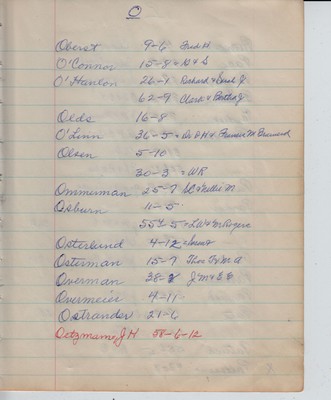 O
Oberst 9-6 Fred H
O'Connor 15-8 = N & S
O'Hanlon 26-1 Richard & Sarah J.
62-9 Clark & Bertha J
Olds 16-8
O'Linn 36-5 = Dr P H & Frances M Brainerd
Olsen 5-10
30-3 = WR
Ommerman 25-7 & Nellie M
Osburn 11-5
5 = LW & Rogers
Osterlund 4-12 =
Osterman 15-7 Thos
Overman 38- J M &
Overmeier 4-11
Ostrander 21-6
Oetzmann, J H 58-6-12